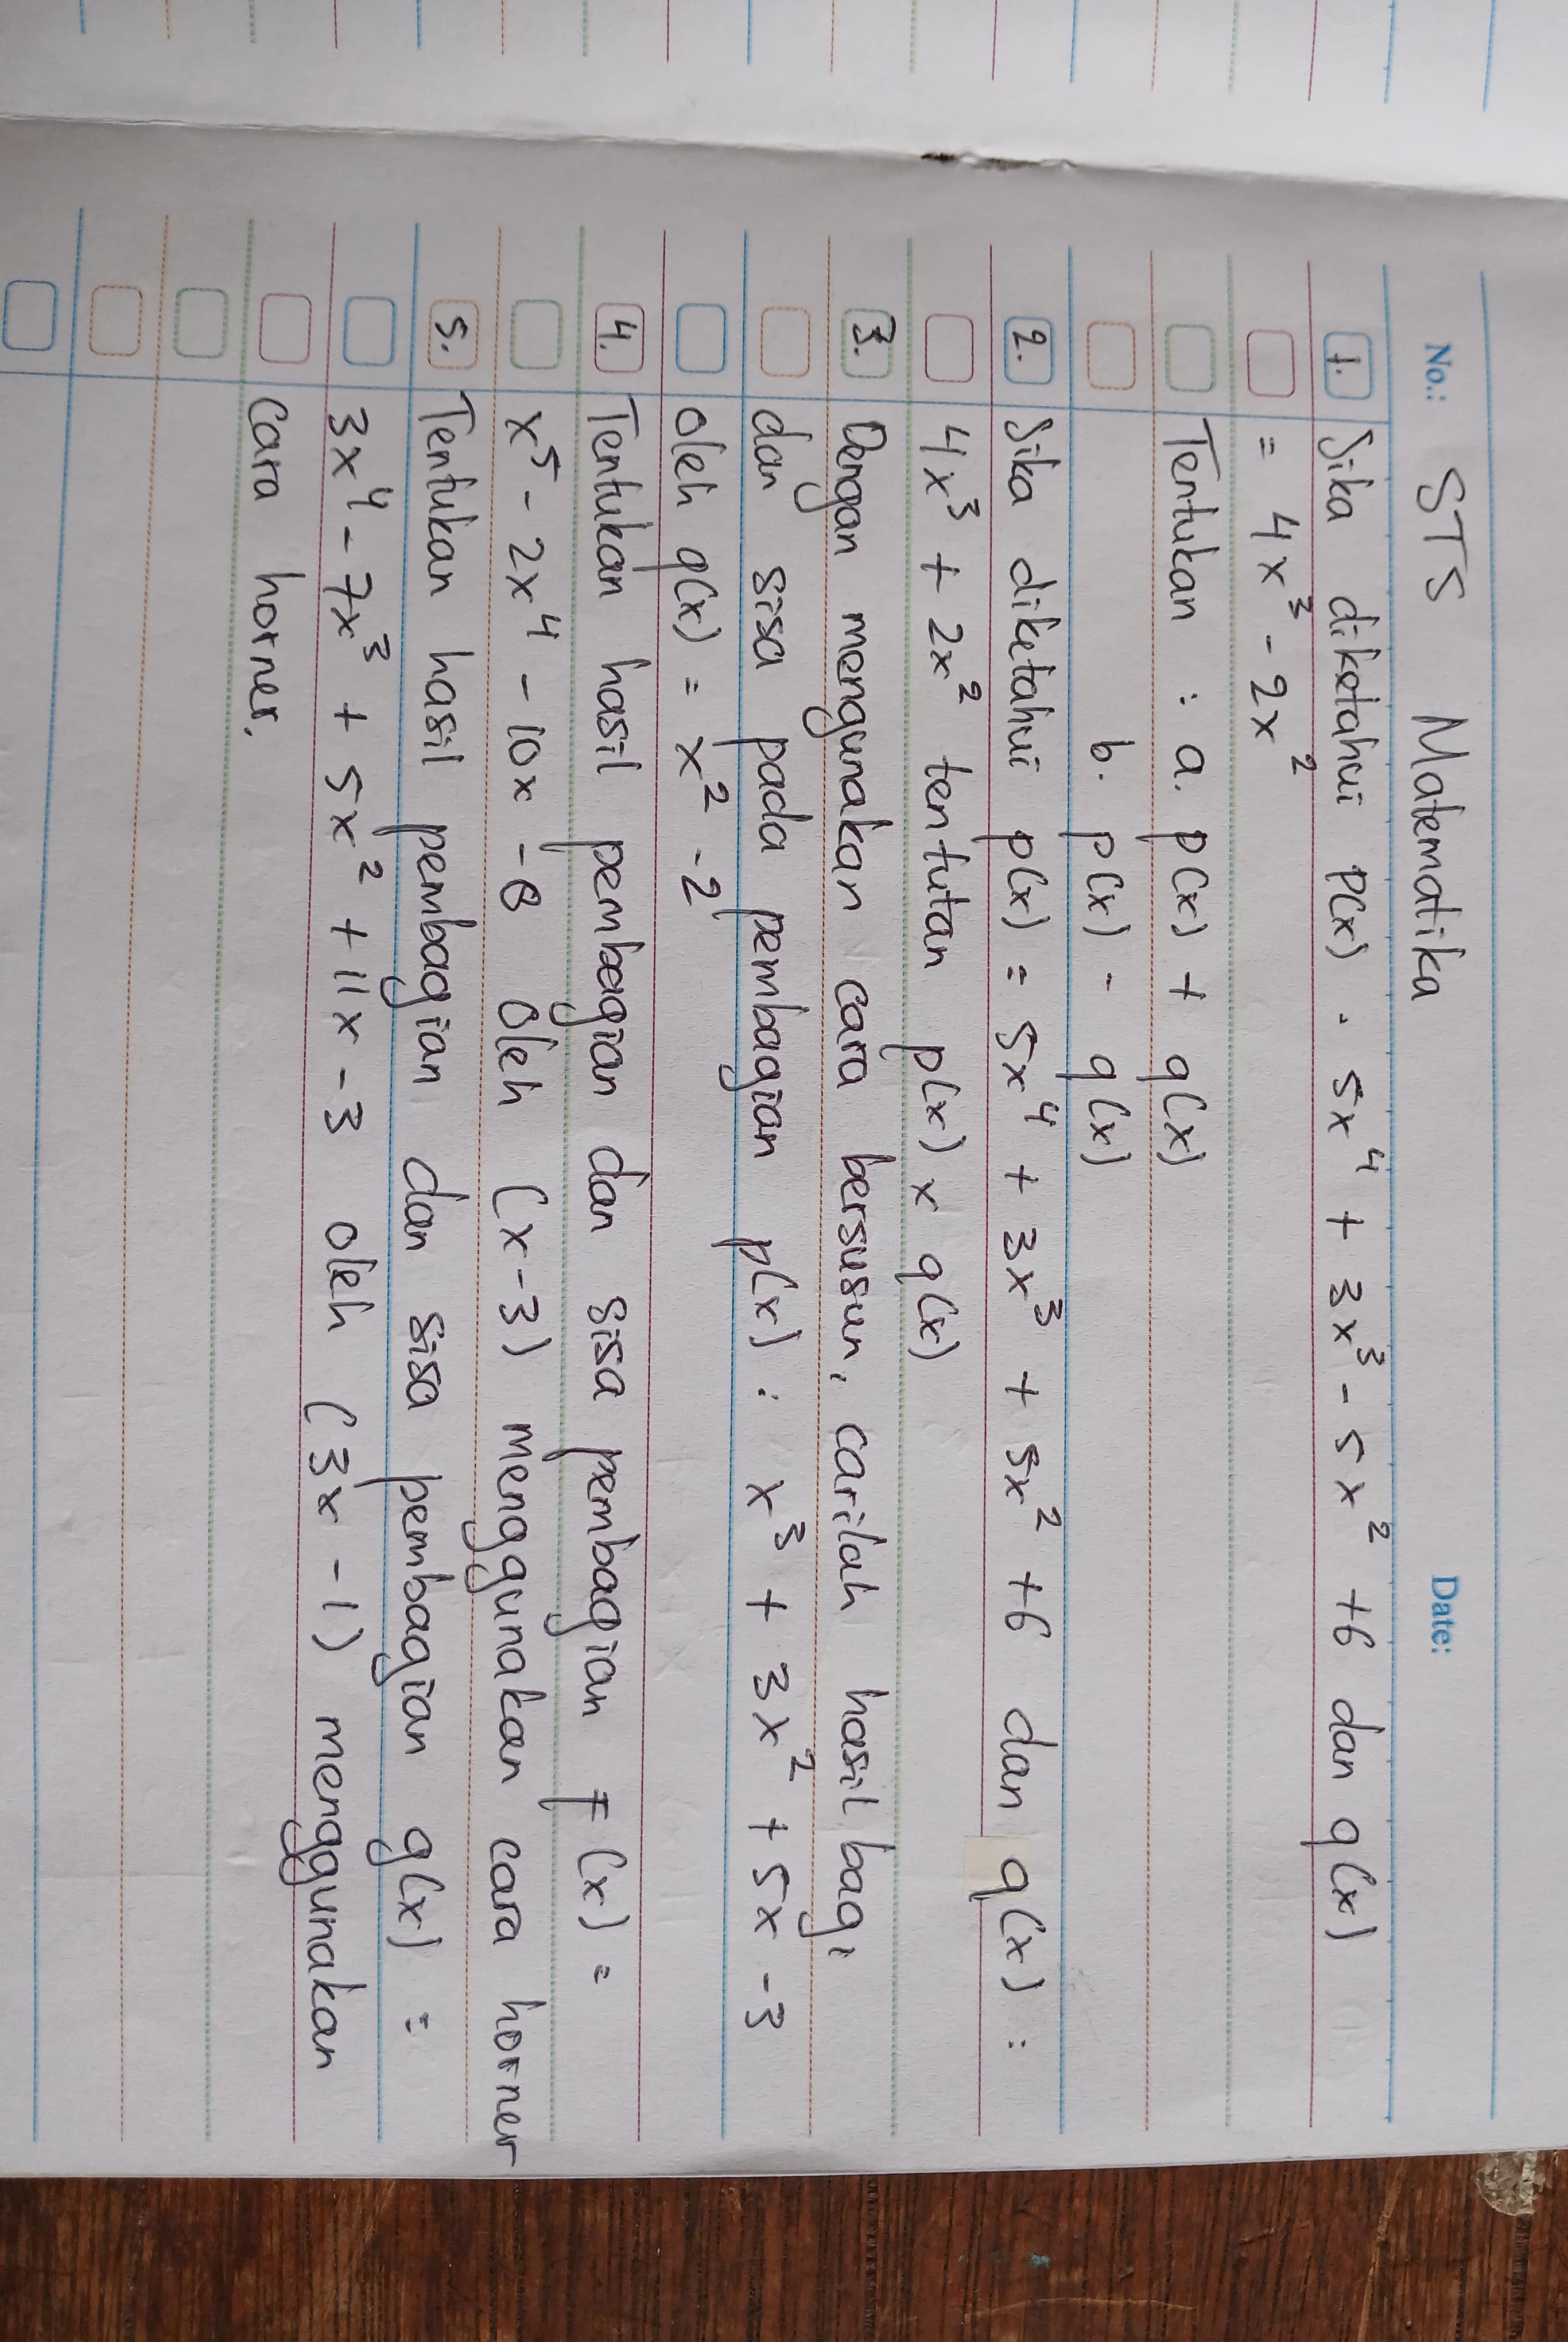 No.: STS Matematika Date:
1. Jika diketahui P(x) . 5x⁴ + 3x³ - 5x² +6 dan q(x)
= 4x³ - 2x²
Tentukan : a. p(x) + q(x)
b. p(x) - q(x)
2. Jika diketahui p(x) = 5x⁴ + 3x³ + 5x² +6 dan q(x) :
4x³ + 2x² tentutan p(x) x q(x)
3. Dengan mengunakan cara bersusun, carilah hasil bagi
dan sisa pada pembagian p(x) : x³ + 3x² + 5x - 3
oleh q(x) = x² - 2
4. Tentukan hasil pembagian dan sisa pembagian F (x) =
x⁵ - 2x⁴ - 10x - 8 oleh (x-3) menggunakan cara horner
5. Tentukan hasil pembagian dan sisa pembagian g(x) =
3x⁴ - 7x³ + 5x² + 11x - 3 oleh (3x - 1) menggunakan
cara horner.